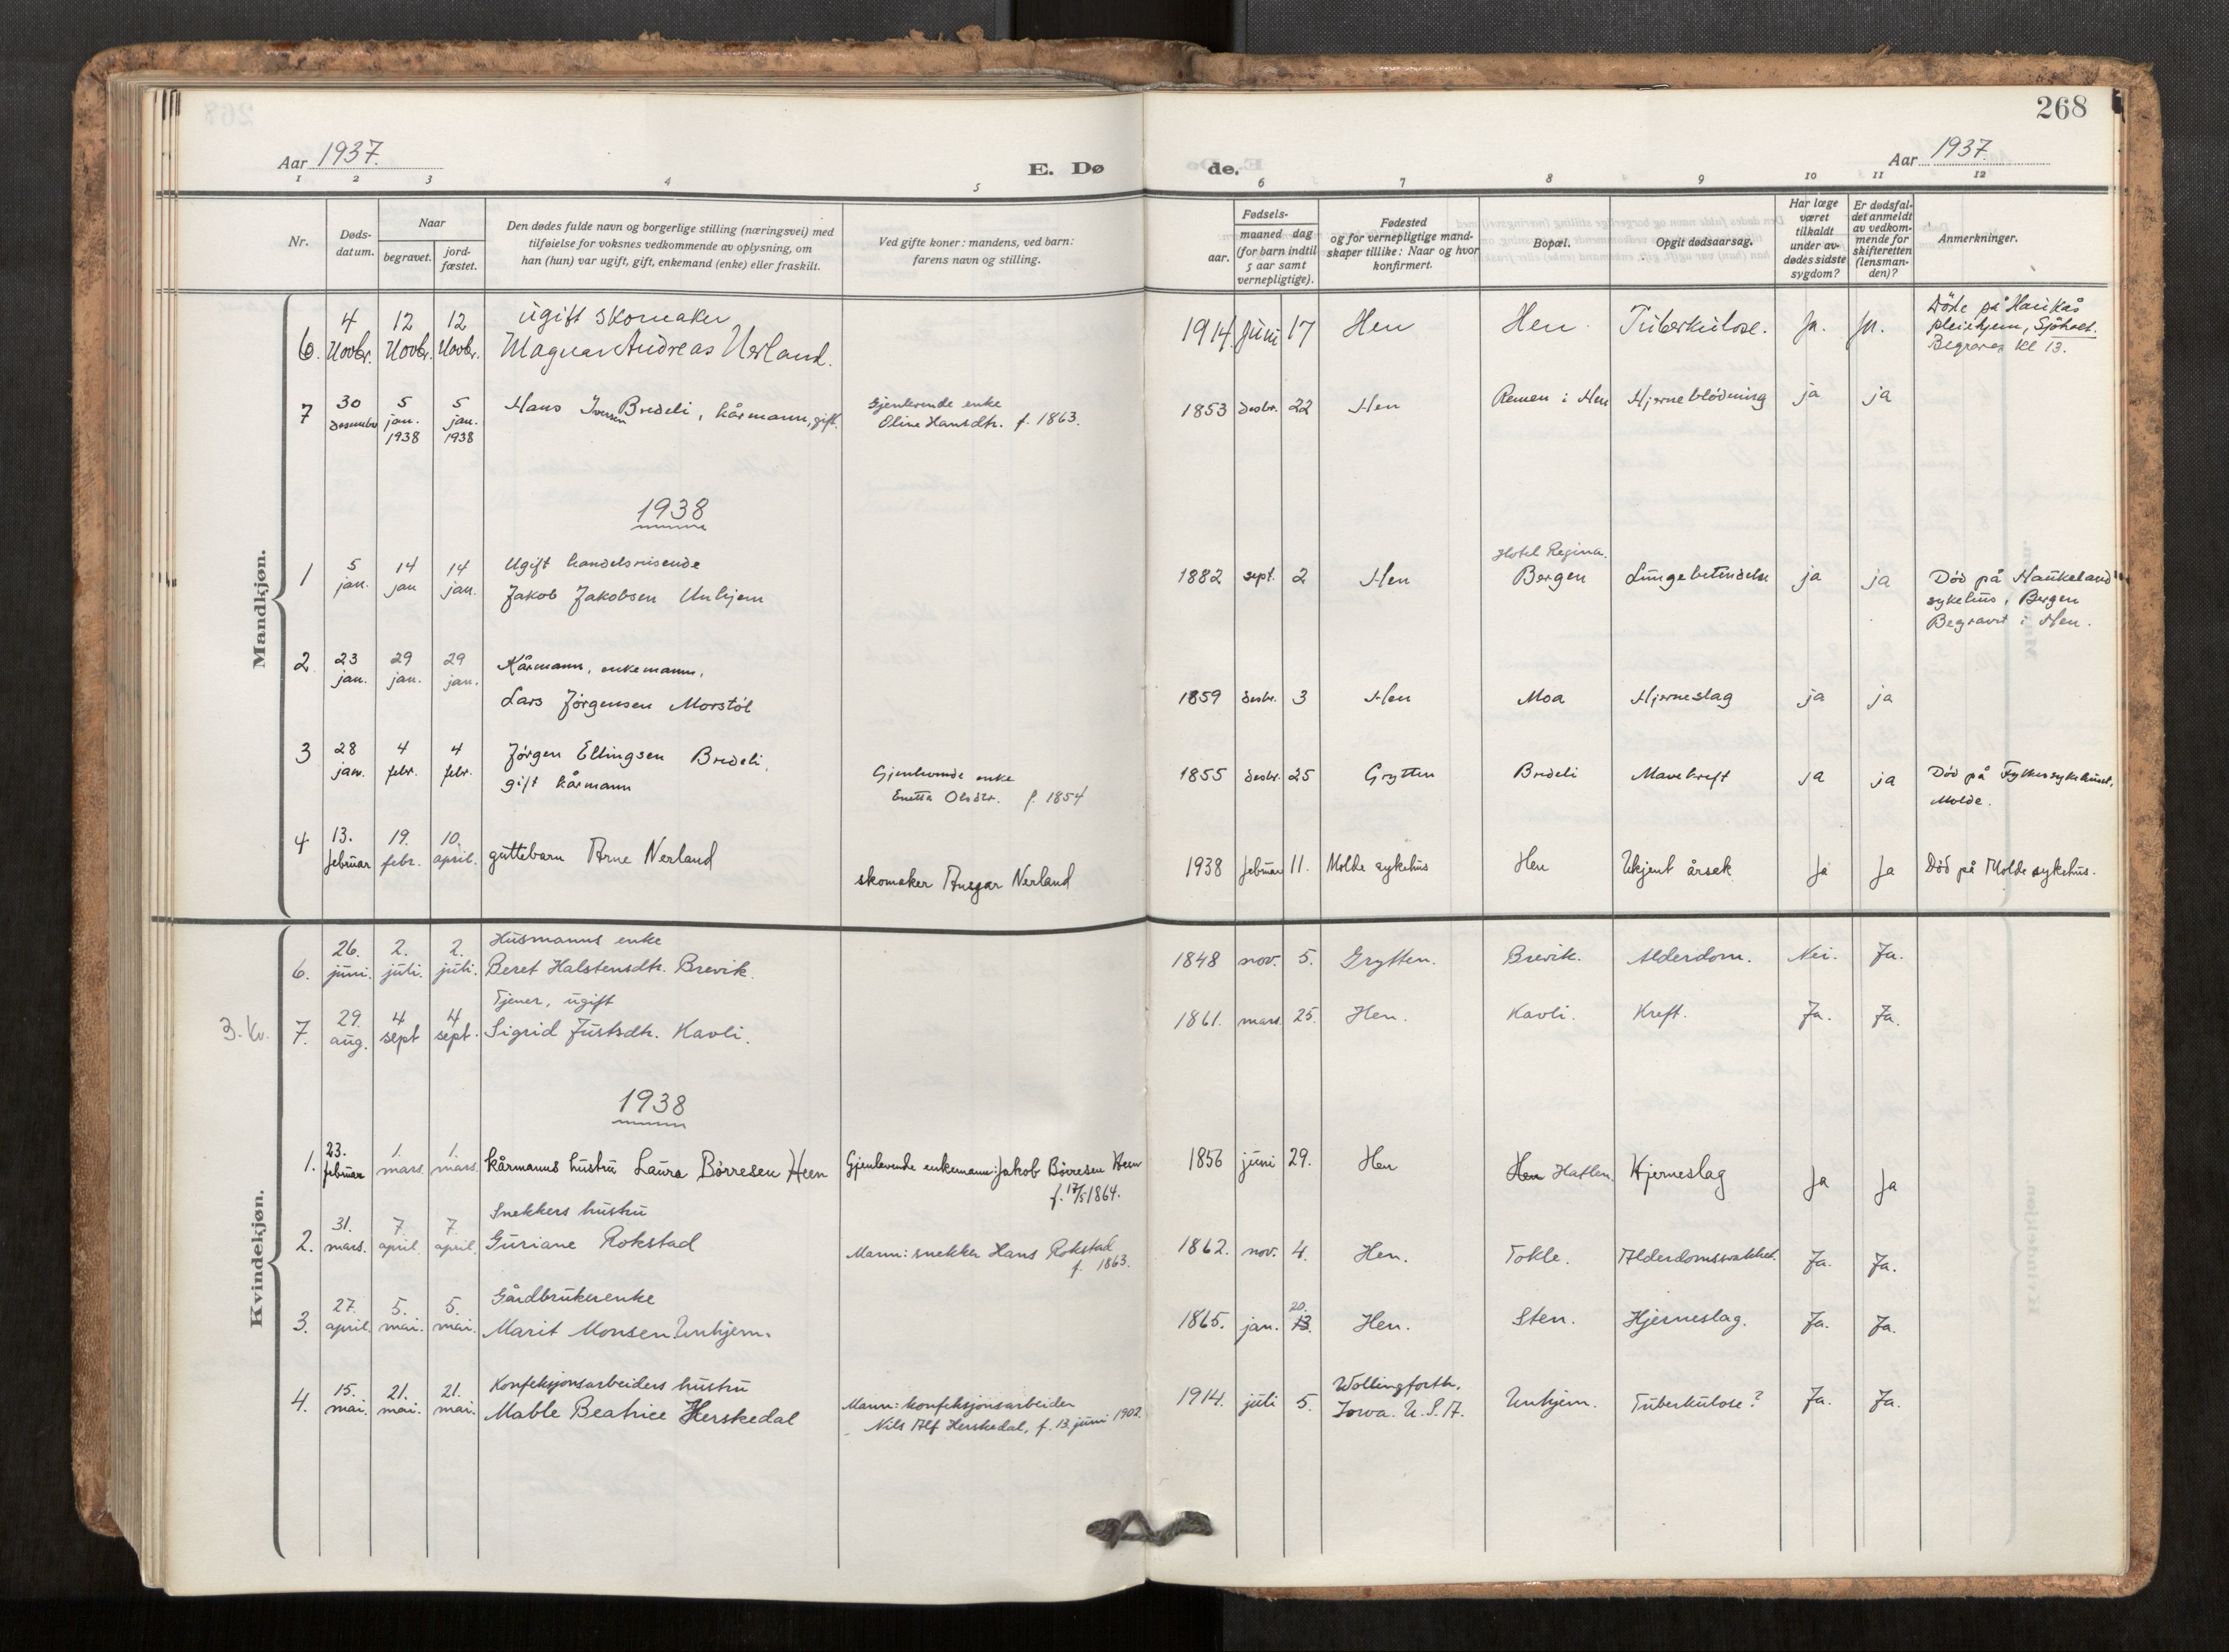 268
Aar 1937.
E. Dø
de.
Aar 1937.
1 2 3 4 5 6 7 8 9 10 11 12
Nr.
Døds-
datum.
Naar
begravet.
jord-
fæstet.
Den dødes fulde navn og borgerlige stilling (næringsvei) med
tilføielse for voksnes vedkommende av oplysning, om
han (hun) var ugift, gift, enkemand (enke) eller fraskilt.
Ved gifte koner: mandens, ved barn:
farens navn og stilling.
Fødsels-
aar.
maaned dag
(for barn indtil
5 aar samt
vernepligtige).
Fødested
og for vernepligtige mand-
skaper tillike: Naar og hvor
konfirmert.
Bopæl.
Opgit dødsaarsag.
Har læge
været
tilkaldt
under av-
dødes sidste
sygdom?
Er dødsfal-
det anmeldt
av vedkom-
mende for
skifteretten
(lensman-
den)?
Anmerkninger.
Mandkjøn.
6.
4 Novbr.
12 Novbr.
12 Novbr.
ugift skomaker
Magnar Andreas Nerland.
1914 Juni 17 Hen Hen. Tuberkulose. Ja. Ja.
Döde på Haukås
pleiehjem, Sjöholt.
Begraves kl 13.
7
30 desember
5 jan. 1938
5 jan. 1938
Hans Iversen Bredeli, kårmann, gift.
Gjenlevende enke
Oline Hansdtr. f. 1863.
1853 desbr. 22 Hen Remen i Hen Hjerneblödning ja ja
1938
1
5 jan.
14 jan
14 jan.
Ugift handelsreisende
Jakob Jakobsen Unhjem
1882 sept. 2 Hen
Hotel Regina.
Bergen
Lungebetendelse ja ja
Död på Haukeland
sykehus, Bergen
Begravet i Hen.
2
23 jan.
29 jan.
29 jan.
Kårmann, enkemann,
Lars Jörgensen Morstöl
1859 desbr. 3 Hen Moa Hjerneslag ja ja
3
28 jan.
4 febr.
4 febr.
Jörgen Ellingsen Bredeli,
gift kårmann
Gjenlevende enke
Enetta Olsdtr. f. 1854
1855 desbr. 25 Grytten Bredeli Mavekreft ja ja
Död på Fylkessykehuset,
Molde.
4
13. februar
19. febr.
10. april.
guttebarn Arne Nerland
skomaker Ansgar Nerland
1938 februar 11. Molde sykehus Hen Ukjent årsak Ja Ja Död på Molde sykehus.
Kvindekjøn.
6.
26. juni.
2. juli.
2. juli.
Husmanns enke
Beret Halstensdtr. Brevik.
1848 nov. 5. Grytten. Brevik. Alderdom. Nei. Ja.
3. kv.
7.
29. aug.
4 sept
4 sept.
Tjener, ugift
Sigrid Justsdtr. Kavli.
1861. mars. 25. Hen. Kavli. Kreft. Ja. Ja.
1938
1.
23. februar
1. mars.
1. mars.
kårmanns hustru Laura Børresen Heen
Gjenlevende enkemann: Jakob Börresen Heen
f. 17/5 1864.
1856 juni 29. Hen Hen Hatlen. Hjerneslag Ja Ja
2.
31. mars.
7. april.
7. april.
Snekkers hustru
Guriane Rokstad
Mann: snekker Hans Rokstad
f. 1863.
1862. nov. 4. Hen. Tokle. Alderdomssvakhet. Ja. Ja.
3.
27. april.
5. mai.
5. mai.
Gårdbrukerenke
Marit Monsen Unhjem.
1865. jan. 20. 13. Hen. Sten. Hjerneslag. Ja. Ja.
4.
15. mai.
21. mai.
21. mai.
Konfeksjonsarbeiders hustru
Mable Beatrice Herskedal
Mann: konfeksjonsarbeider
Nils Alf Herskedal, f. 13. juni 1902.
1914. juli 5.
Wollingforth.
Iowa. U.S.A.
Unhjem. Tuberkulose? Ja. Ja.